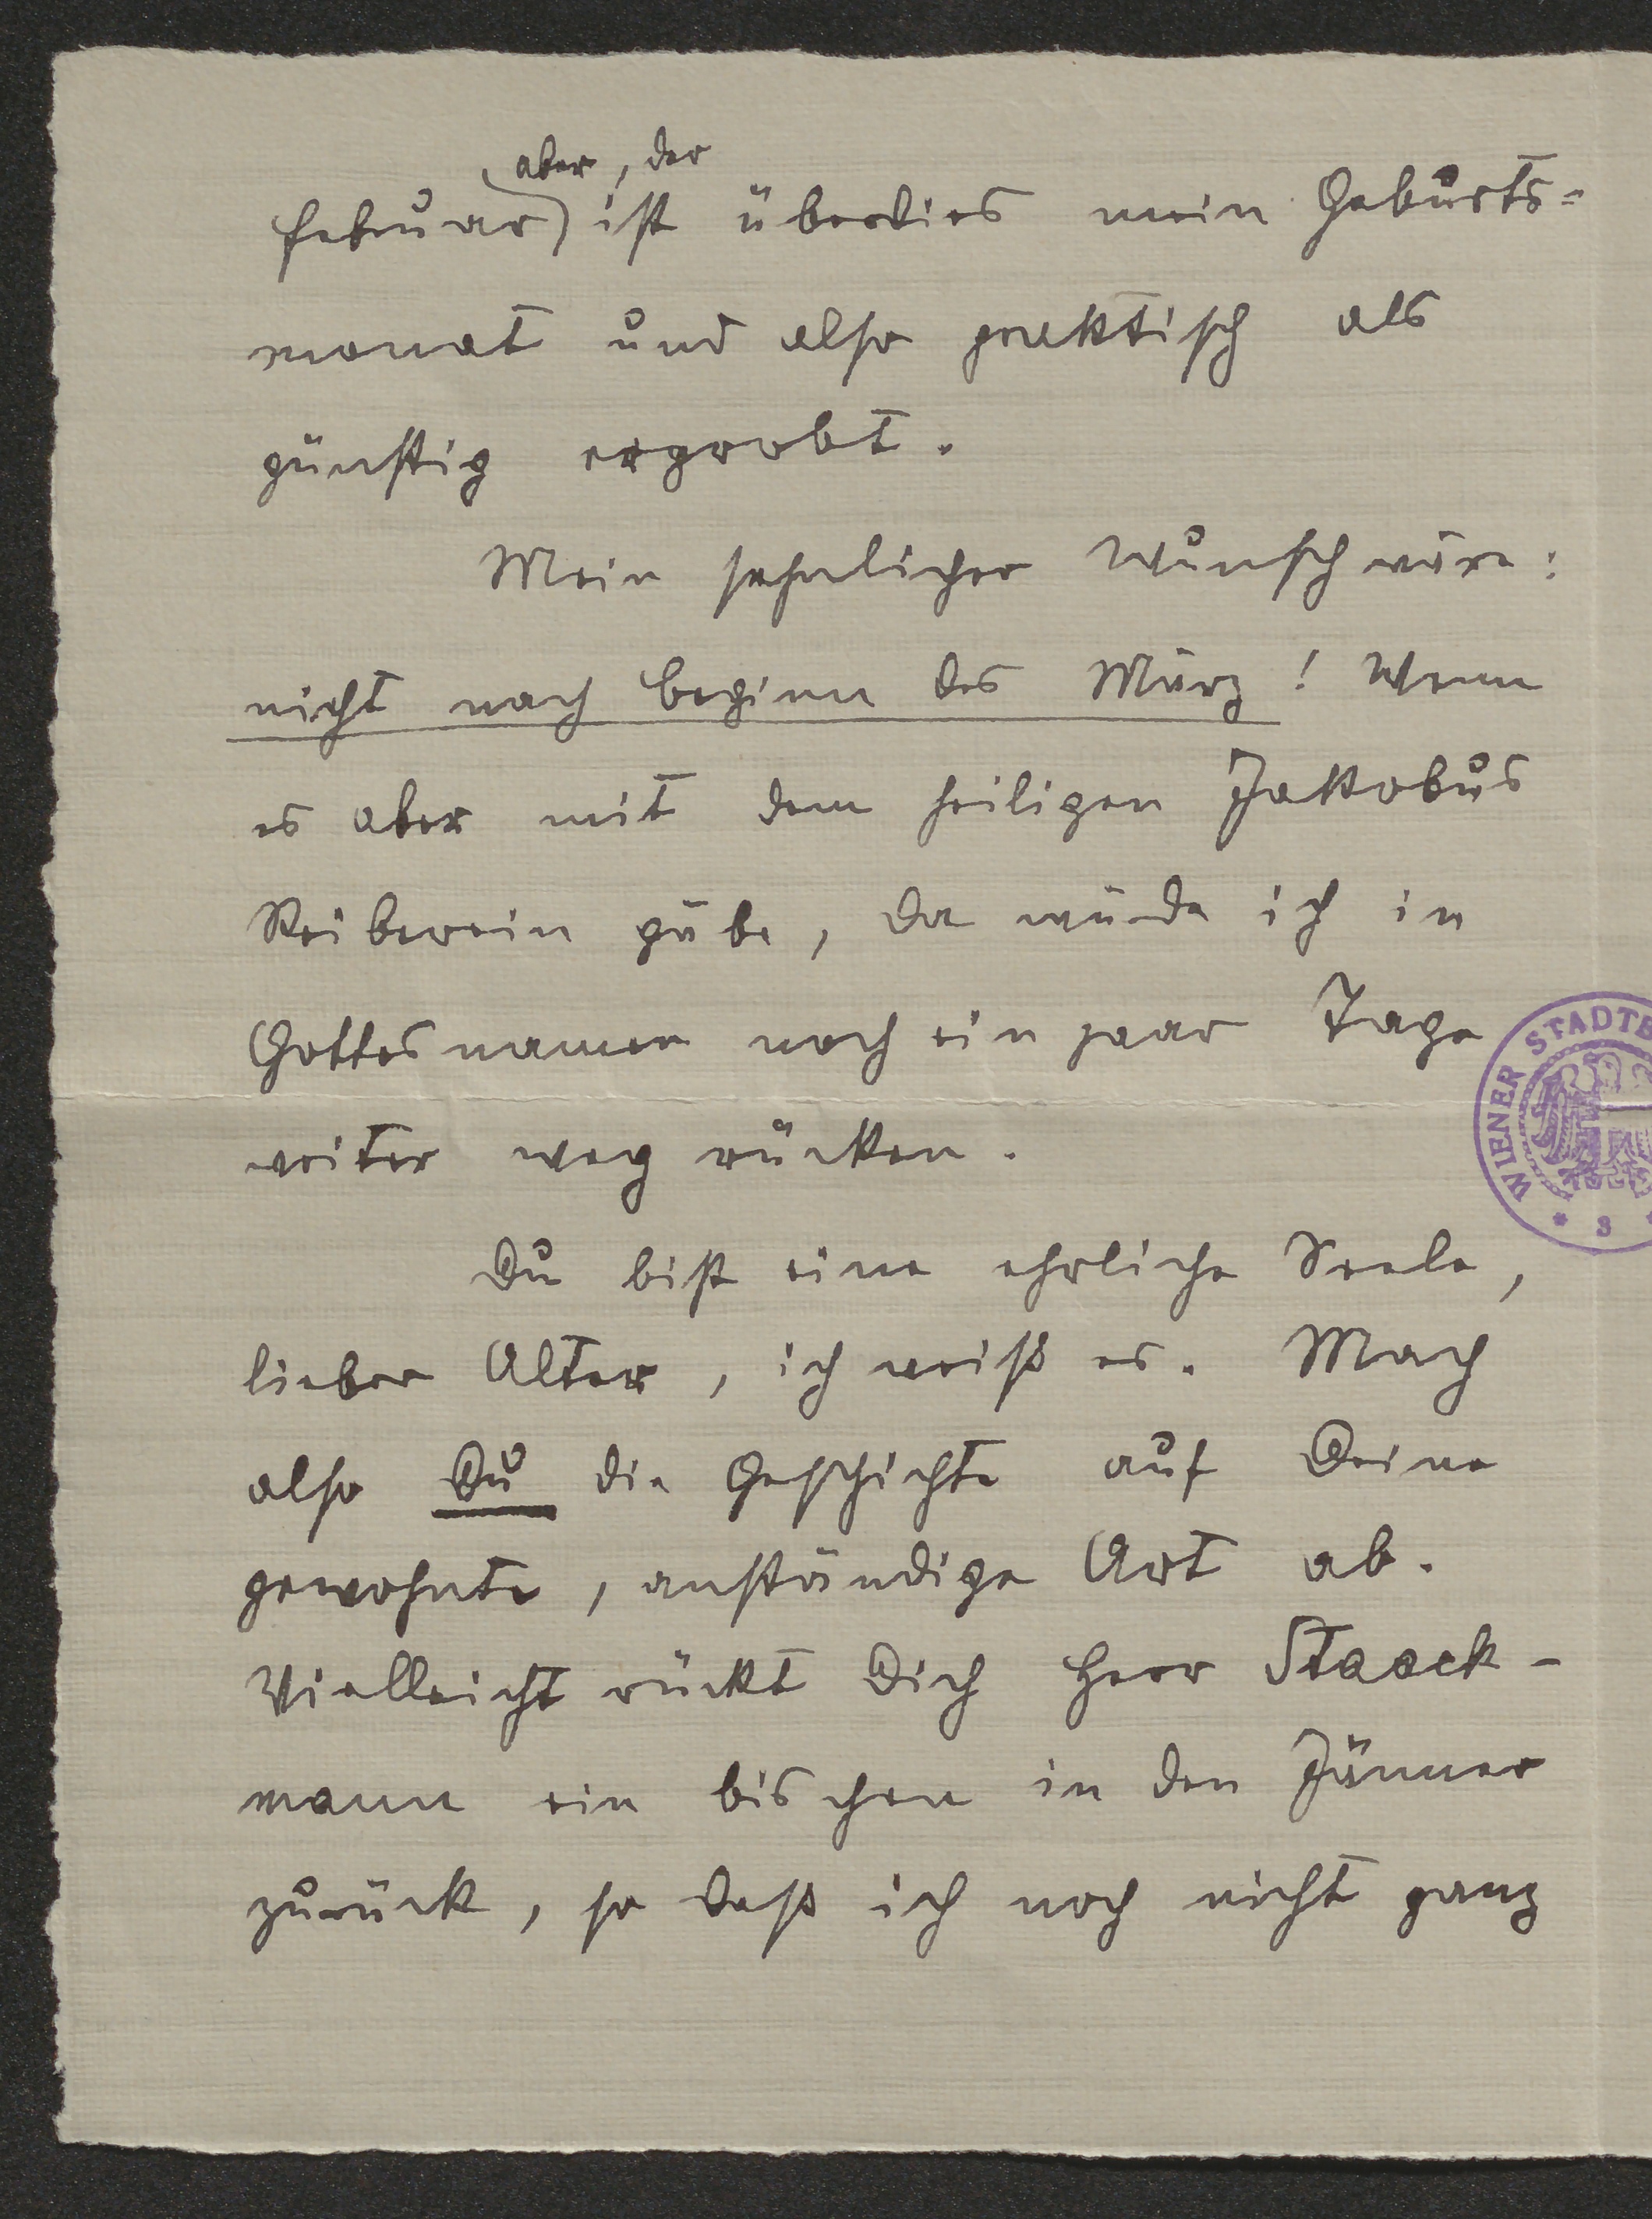 aber, der
Februar) ist überdies mein Geburts=
monat und also praktisch als
günstig erprobt.
Mein sehnlicher Wunsch wäre:
nicht nach Beginn des März! Wenn
es aber mit dem heiligen Jakobus
Reiberein gäbe, da würde ich in
Gottesnamen noch ein paar Tage
weiter weg rücken.
WIENER STADTB
* 3 *
Du bist eine ehrliche Seele,
lieber Alter, ich weiß es. Mach
also Du die Geschichte auf Deine
gewohnte, anständige Art ab.
Vielleicht rückt Dich Herr Staack-
mann ein bischen in den Jänner
zurück, so daß ich noch nicht ganz